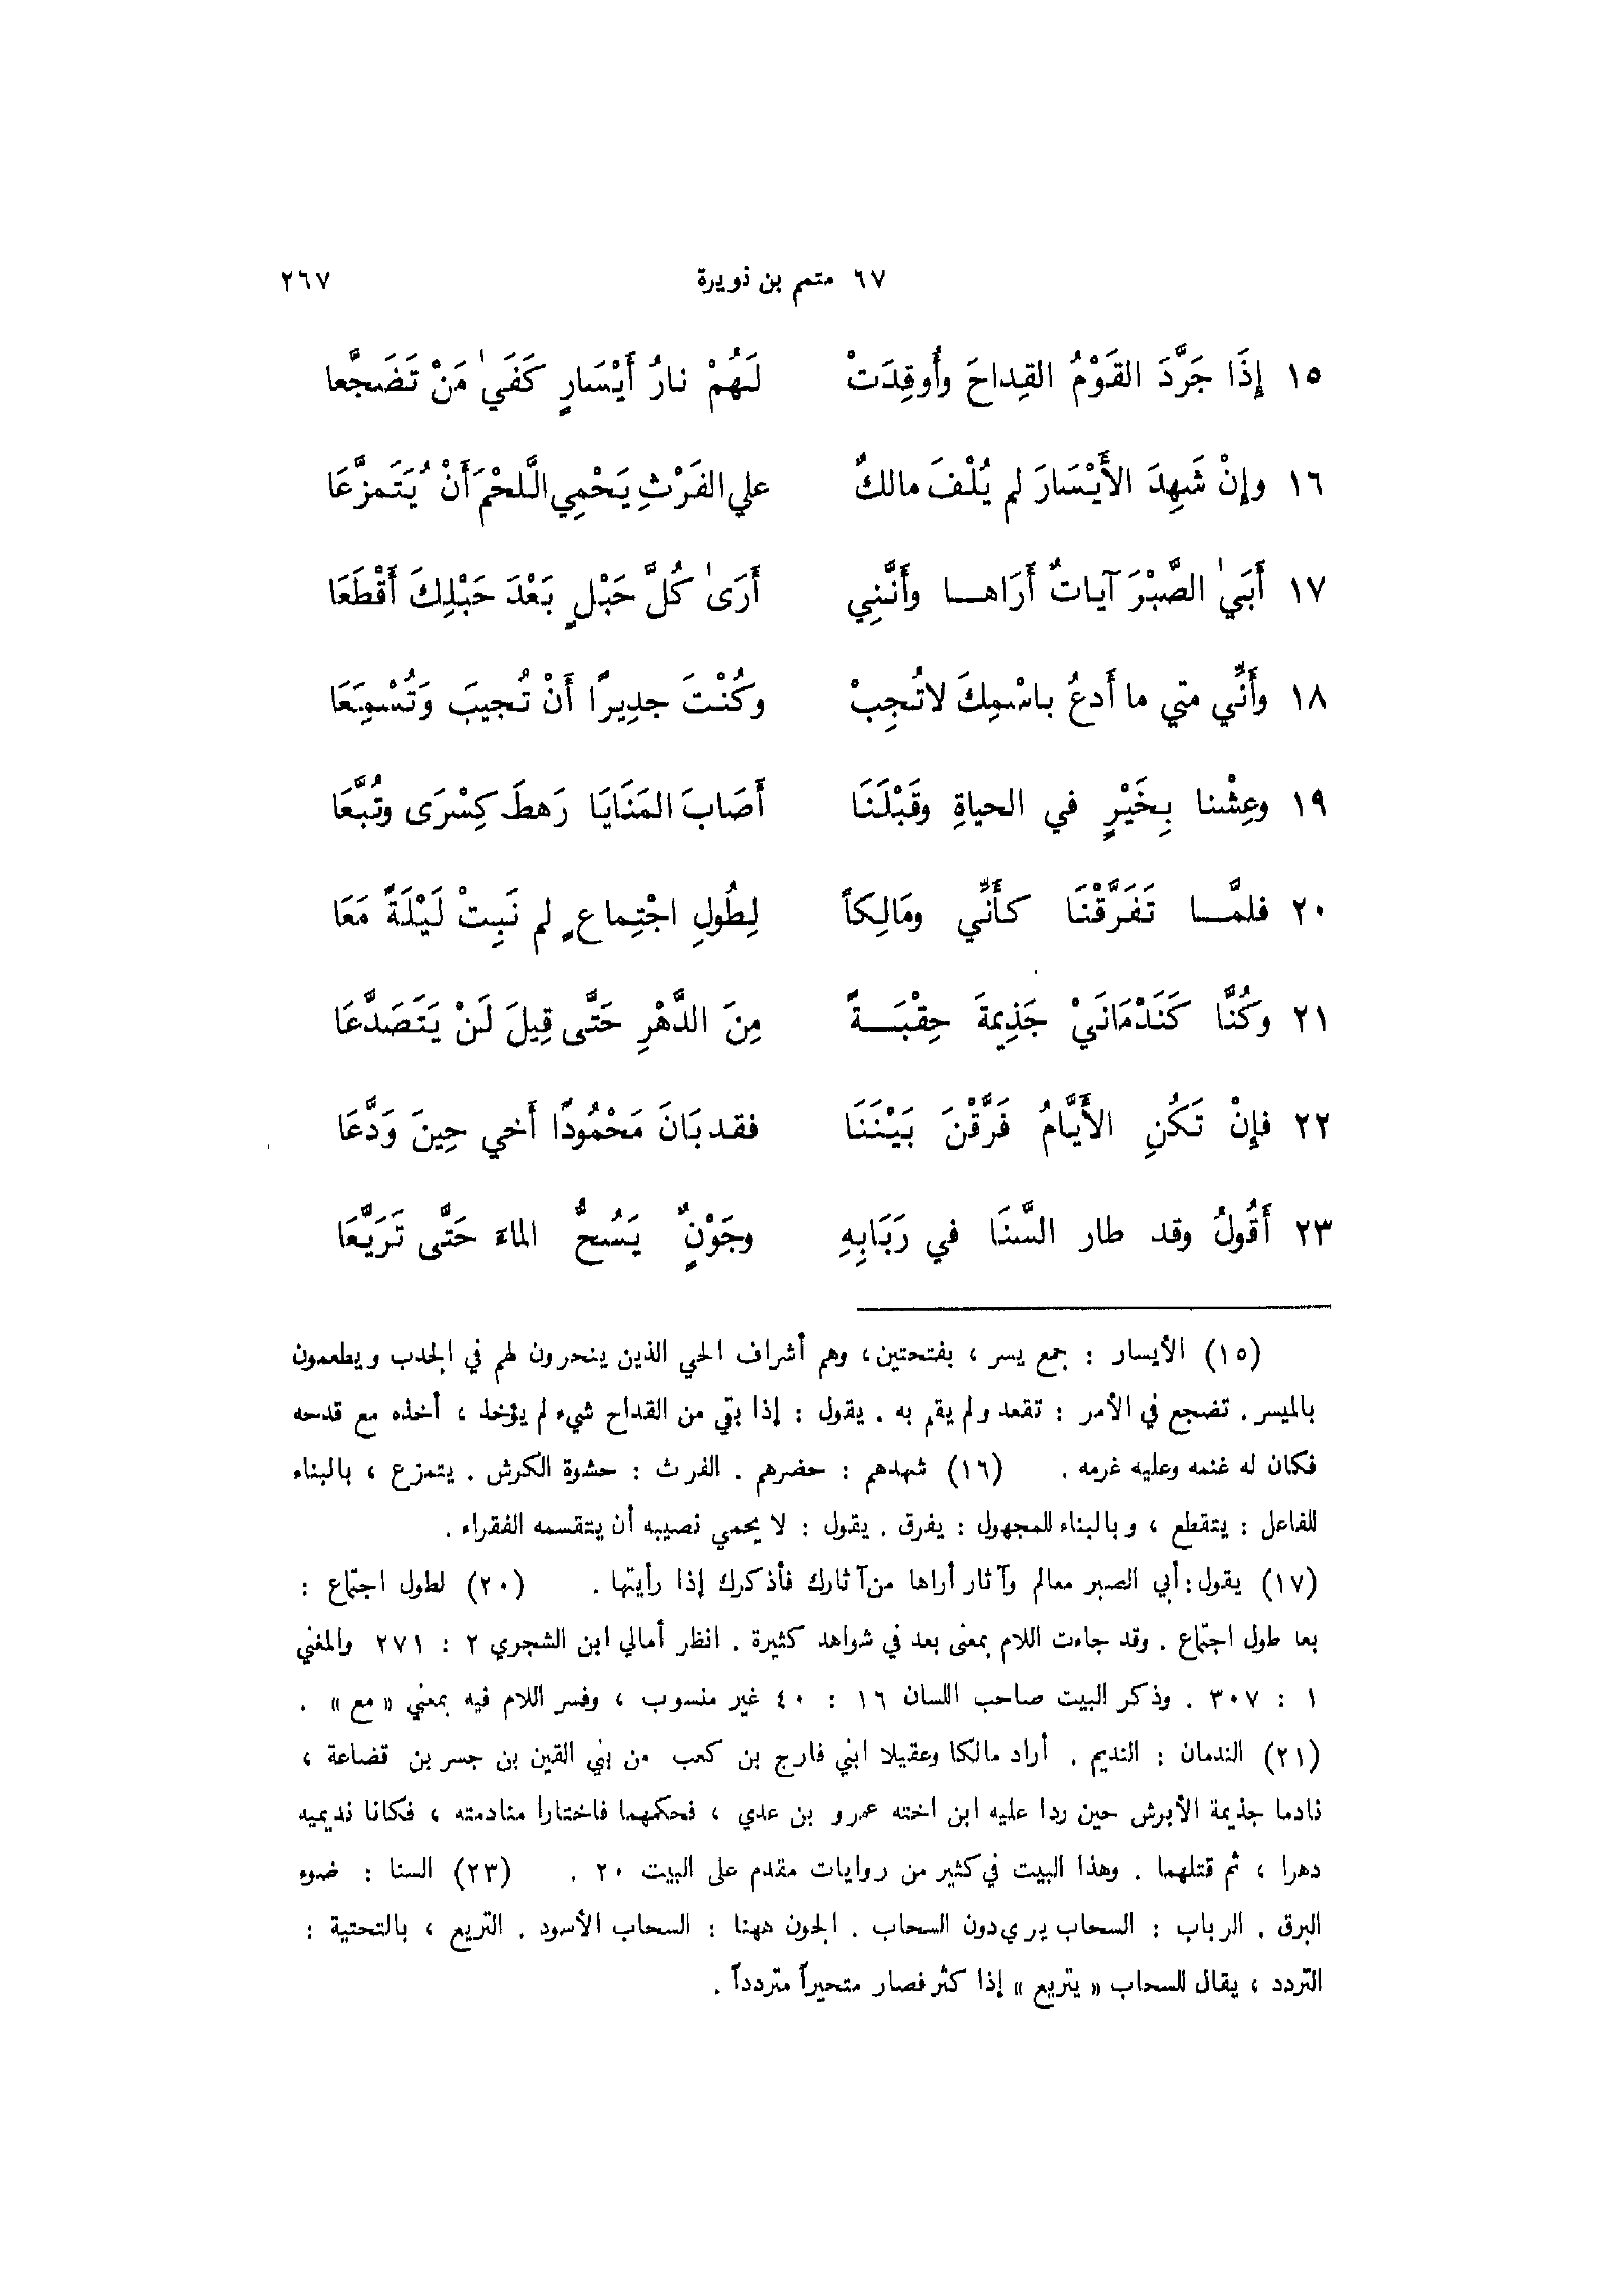 ٦٧ متمم بن نويرة ٢٦٧
١٥ إِذَا جَرَّدَ القَوْمُ القِداحَ وأُوقِدَتْ لَهُمْ نارُ أَيْسَارٍ كَفَىٰ مَنْ تَضَجَّعا
١٦ وإِنْ شَهِدَ الأَيْسَارَ لم يُلْفَ مالكٌ علي الفَرْثِ يَحْمِي اللَّحْمَ أَنْ يُتَمزَّعَا
١٧ أَبَىٰ الصَّبْرَ آياتٌ أَرَاهـا وأَنَّنِي أَرَىٰ كُلَّ حَبْلٍ بَعْدَ حَبْلِكَ أَقْطَعَا
١٨ وأَنِّي متي ما أَدعُ باسْمِكَ لاتُجِبْ وكُنْتَ جدِيرًا أَنْ تُجيبَ وَتُسْمِعَا
١٩ وعِشْنا بِخَيْرٍ في الحياةِ وقَبْلَنَا أَصَابَ المَنَايَا رَهطَ كِسْرَى وتُبَّعَا
٢٠ فلمَّـا تَفَرَّقْنَا كأَنِّي ومَالِكاً لِطُولِ اجْتِماعٍ لم نَبِتْ لَيْلَةً مَعَا
٢١ وكُنَّا كَنَدْمَانَيْ جَذِيمَةَ حِقْبَـةً مِنَ الدَّهْرِ حَتَّى قِيلَ لَنْ يَتَصَدَّعَا
٢٢ فإِنْ تَكُنِ الأَيَّامُ فَرَّقْنَ بَيْنَنَا فقد بَانَ مَحْمُودًا أَخي حِينَ وَدَّعَا
٢٣ أَقُولُ وقد طار السَّنَا في رَبَابِهِ وجَوْنٌٍ يَسُحُّ الماءَ حَتَّى تَرَيَّعَا
(١٥) الأيسار : جمع يسر ، بفتحتين، وهم أشراف الحي الذين ينحرون لهم في الجدب ويطعمون
بالميسر . تضجع في الأمر : تقعد ولم يقم به . يقول : إذا بقي من القداح شيء لم يؤخذ ، أخذه مع قدحه
فكان له غنمه وعليه غرمه . (١٦) شهدهم : حضرهم . الفرث : حشوة الكرش . يتمزع ، بالبناء
للفاعل : يتقطع ، وبالبناء للمجهول : يفرق . يقول : لا يحمي نصيبه أن يتقسمه الفقراء .
(١٧) يقول : أبي الصبر معالم وآثار أراها من آثارك فأذكرك إذا رأيتها . (٢٠) لطول اجتماع :
بعا طول اجتماع . وقد جاءت اللام بمعنى بعد في شواهد كثيرة . انظر أمالي ابن الشجري ٢ : ٢٧١ والمغني
١ : ٣٠٧ . وذكر البيت صاحب اللسان ١٦ : ٤٠ غير منسوب ، وفسر اللام فيه بمعني « مع » .
(٢١) الندمان : النديم . أراد مالكا وعقيلا ابني فارج بن كعب من بني القين بن جسر بن قضاعة ،
نادما جذيمة الأبرش حين ردا عليه ابن اخته عمرو بن عدي ، فحكمهما فاختارا منادمته ، فكانا نديميه
دهرا ، ثم قتلهما . وهذا البيت في كثير من روايات مقدم على البيت ٢٠ . (٢٣) السنا : ضوء
البرق . الرباب : السحاب يري دون السحاب . الجون ههنا : السحاب الأسود . التريع ، بالتحتية :
التردد ، يقال للسحاب « يتريع » إذا كثر فصار متحيراً متردداً .